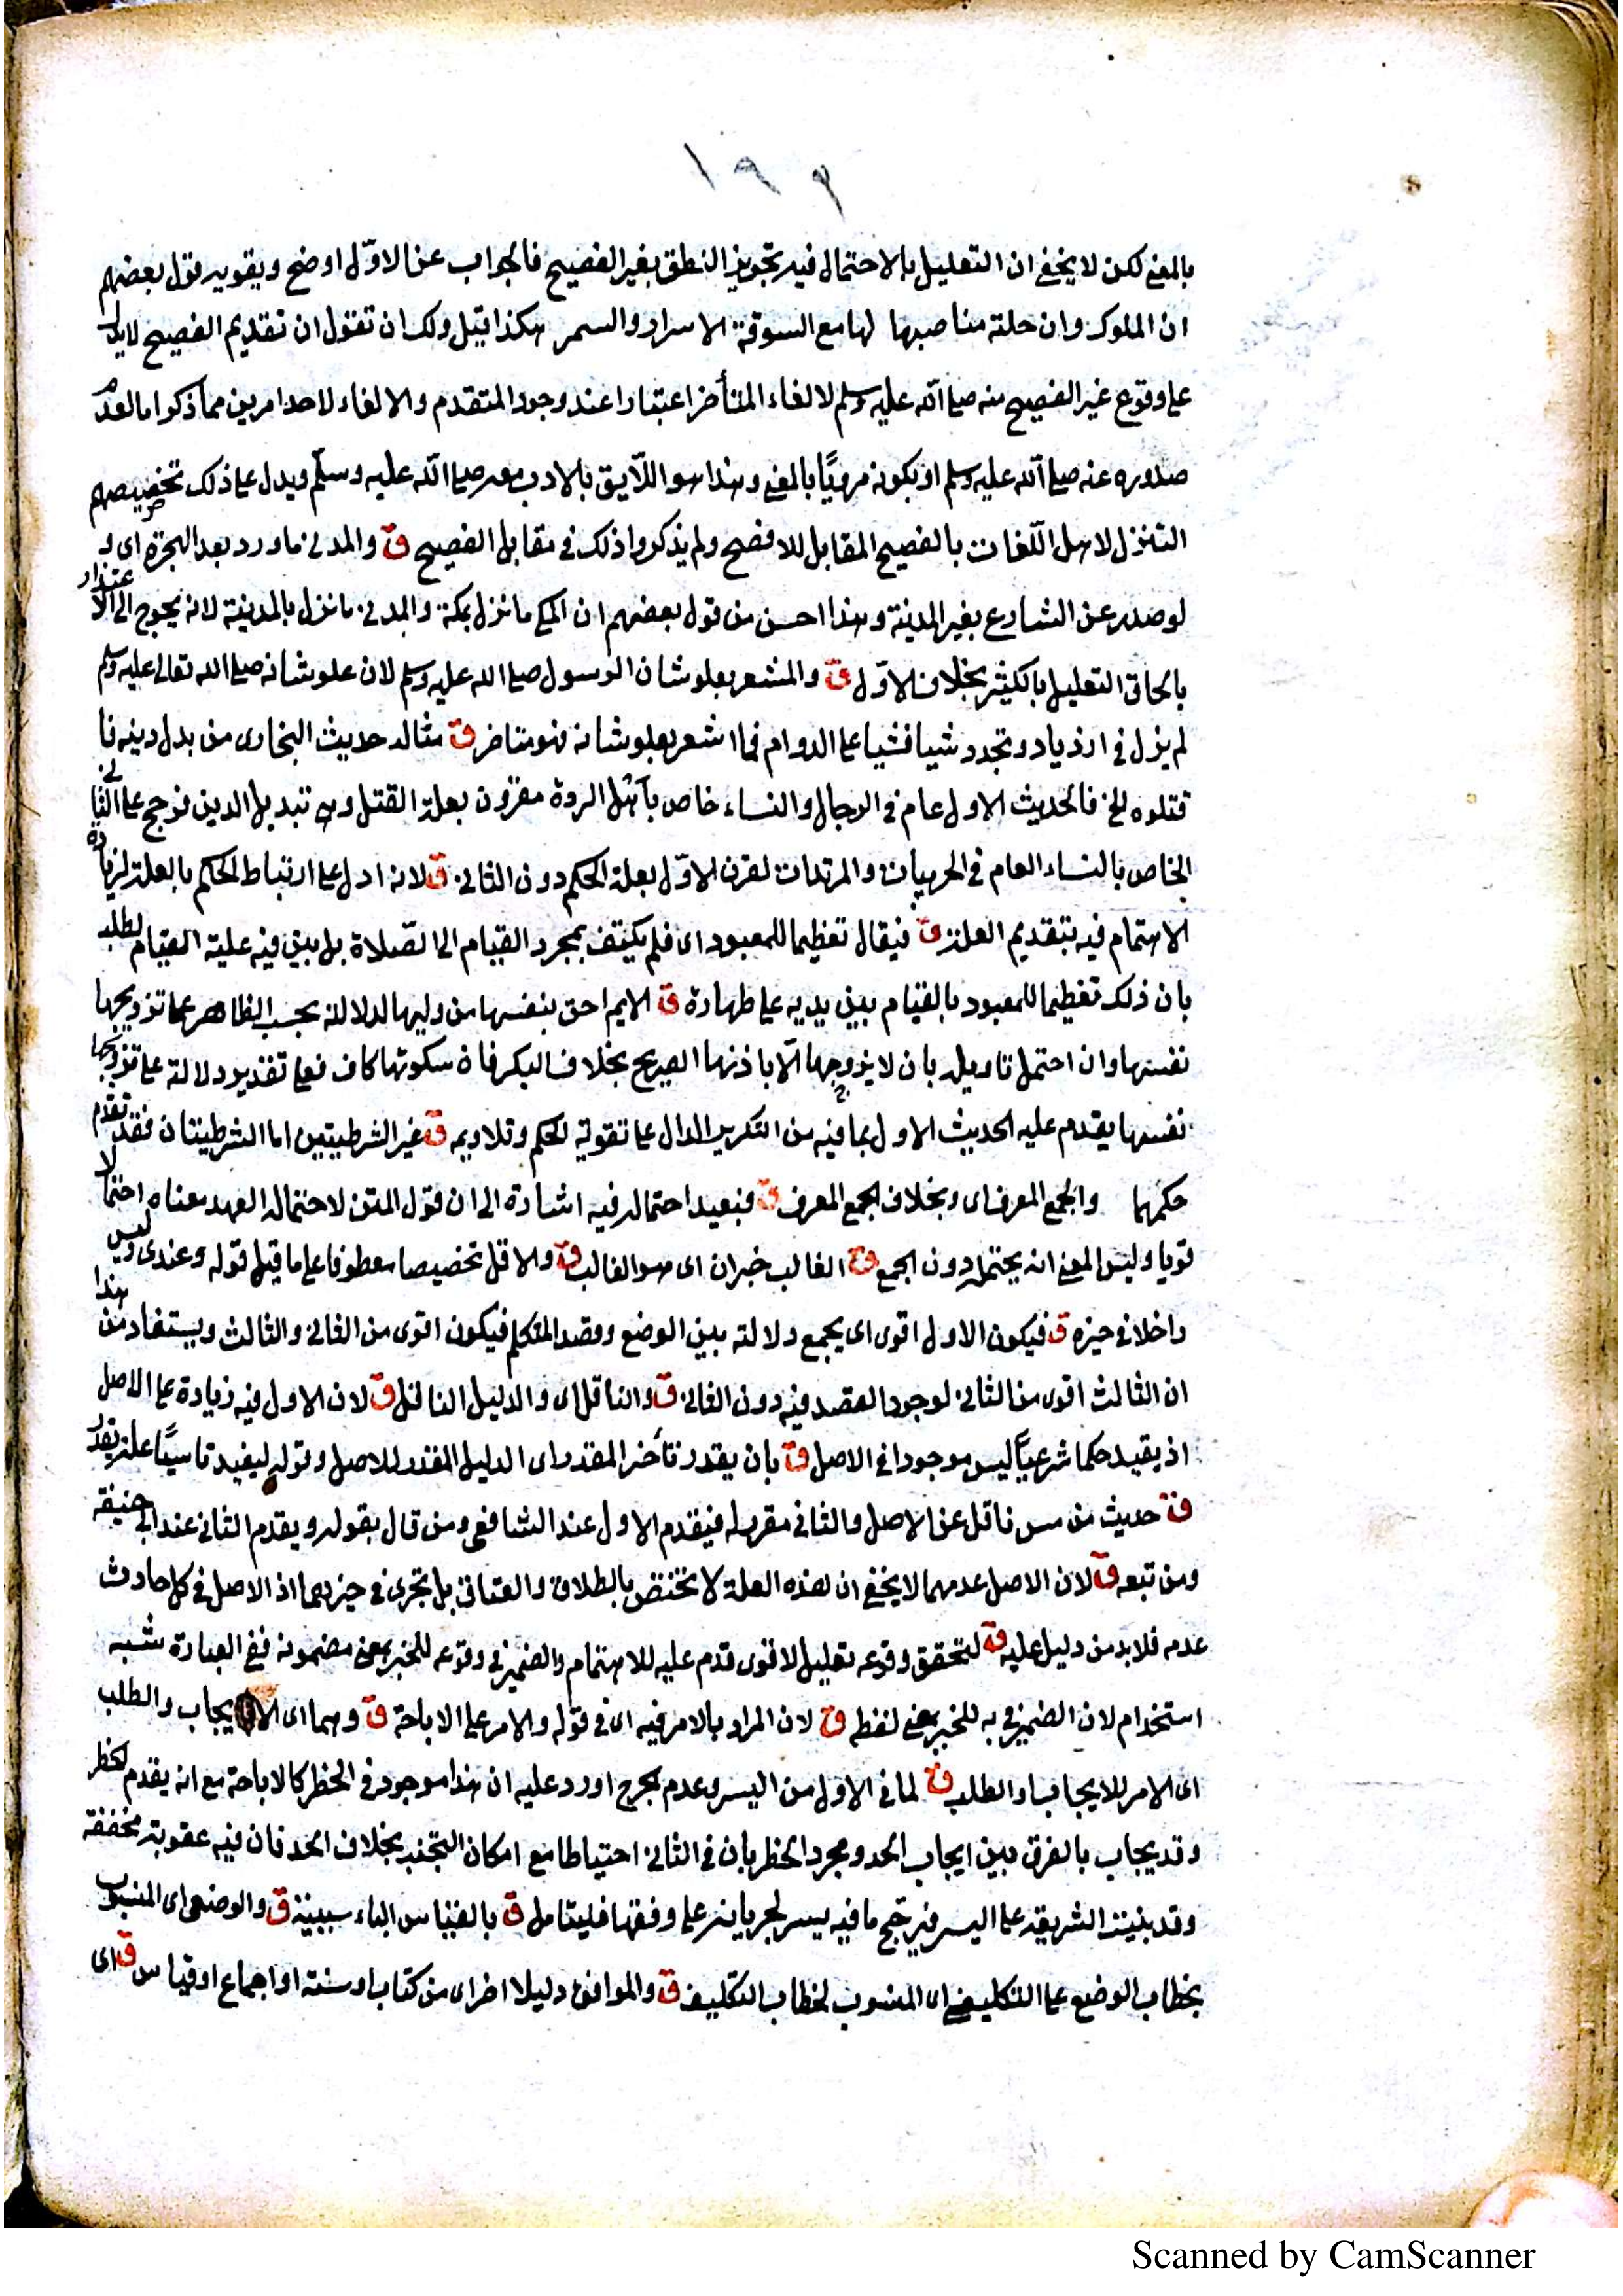 ١٩٦
بالمعنى لكن لا يخفى ان التعليل بالاحتمال فيه تجويز النطق بغير الفصيح فالجواب عن الاوّل اوضح ويقويه قول بعضهم
ان الملوك وان جلت مناصبها لها مع السوقة الاسرار والسمر هكذا قيل ولك ان تقول ان تقديم الفصيح لا يدل
على وقوع غير الفصيح منه صلى الله عليه وسلم لالغاء المتأخر اعتبارا عند وجود المتقدم والالغاء لاحد امرين مما ذكر اما لعدم
صدوره عنه صلى الله عليه وسلم او بكونه مرويًا بالمعنى وهذا هو اللّايق بالادب معه صلى الله عليه وسلّم ويدل على ذلك تخصيصهم
التنزل لاهل اللّغات بالفصيح المقابل للافصح ولم يذكروا ذلك في مقابل الفصيح ق والمدني ما ورد بعد الهجرة اى و
لو صدر عن الشارع بغير المدينة وهذا احسن من قول بعضهم ان المكي ما نزل بمكة والمدني ما نزل بالمدينة لانه يحوج الى الاعتذار
بالحاق التعليل بالكثير بخلاف الاوّل ق والمشعر بعلو شان الرسول صلى الله عليه وسلم لان علو شانه صلى الله تعالى عليه وسلم
لم يزل في ازدياد وتجدد شيا فشيا على الدوام فما اشعر بعلو شانه فهو متاخر ق مثاله حديث البخارى من بدل دينه فا
قتلوه الخ فالحديث الاول عام في الرجال والنساء خاص بأهل الردة مقرون بعلة القتل وهى تبديل الدين فرجح على الثاني
الخاص بالنساء العام في الحربيات والمرتدات لقرن الاوّل بعلة الحكم دون الثاني ق لانه ادل على ارتباط الحكم بالعلة لزيادة
الاهتمام فيه بتقديم العلة ق فيقال تعظيما للمعبود اى فلم يكتف بمجرد القيام الى الصّلاة بل بين فيه علية القيام لطلبه
بان ذلك تعظيما للمعبود بالقيام بين يديه على طهارة ق الايم احق بنفسها من وليها لدلالته بحسب الظاهر على تزويجها
نفسها وان احتمل تاويله بان لا يزوجها الّا باذنها الصريح بخلاف البكر فان سكوتها كاف فعلى تقدير دلالته على تزويجها
نفسها يقدم عليه الحديث الاول بما فيه من التكرير الدال على تقوية الحكم وقلاويه ق غير الشرطيتين اما الشرطيتان فقد تقدم
حكمهما والجمع المعرف اى وبخلاف الجمع المعرف ق فبعيد احتماله فيه اشارة الى ان قول المتن لاحتماله العهد معناه احتمالا
قويا وليس المعنى انه يحتمله دون الجمع ق الغالب خبر ان اى هو الغالب ق والاقل تخصيصا معطوفا على ما قبل قوله وعندى وليس
داخلا في حيزه ق فيكون الاول اقوى اى بجمع دلالته بين الوضع وقصد المتكلم فيكون اقوى من الثاني والثالث ويستفاد من هذا
ان الثالث اقوى من الثاني لوجود القصد فيه دون الثاني ق والناقل اى والدليل الناقل ق لان الاول فيه زيادة على الاصل
اذ يفيد حكما شرعيًا ليس موجودا في الاصل ق بان يقدر تأخر المقدر اى الدليل المقدر للاصل وقوله ليفيد تاسيسًا علة يقدر
ق حديث من مس ناقل عن الاصل والثاني مقرر له فيقدم الاول عند الشافعى ومن قال بقوله ويقدم الثاني عند ابى حنيفة
ومن تبعه ق لان الاصل عدمهما لا يخفى ان هذه العلة لا تختص بالطلاق والعتاق بل تجرى في حيزهما اذ الاصل في كل حادث
عدمه فلا بد من دليل عليه ق لتحقق وقوعه تعليل لاقوى قدم عليه للاهتمام والضمير في وقوعه للخبر بمعنى مضمونه ففى العبارة شبه
استخدام لان الضمير في به للخبر بمعنى لفظه ق لان المراد بالامر فيه اى في قوله والامر على الاباحة ق وهما اى الايجاب والطلب
اى الامر للايجاب او الطلب ق لما في الاول من اليسر وعدم الحرج اورد عليه ان هذا موجود في الحظر كالاباحة مع انه يقدم الحظر
وقد يجاب بالفرق بين ايجاب الحد ومجرد الحظر بان في الثاني احتياطا مع امكان التجنب بخلاف الحد فان فيه عقوبة مخففة
وقد بنيت الشريعة على اليسر فيرجح ما فيه يسر لجريانه على وفقها فليتامل ق بالقياس الباء سببية ق والوضعى اى المنسوب
بخطاب الوضع على التكليفى اى المنسوب لخطاب التكليف ق والموافق دليلا اخر اى من كتاب او سنة او اجماع او قياس ق اى
Scanned by CamScanner